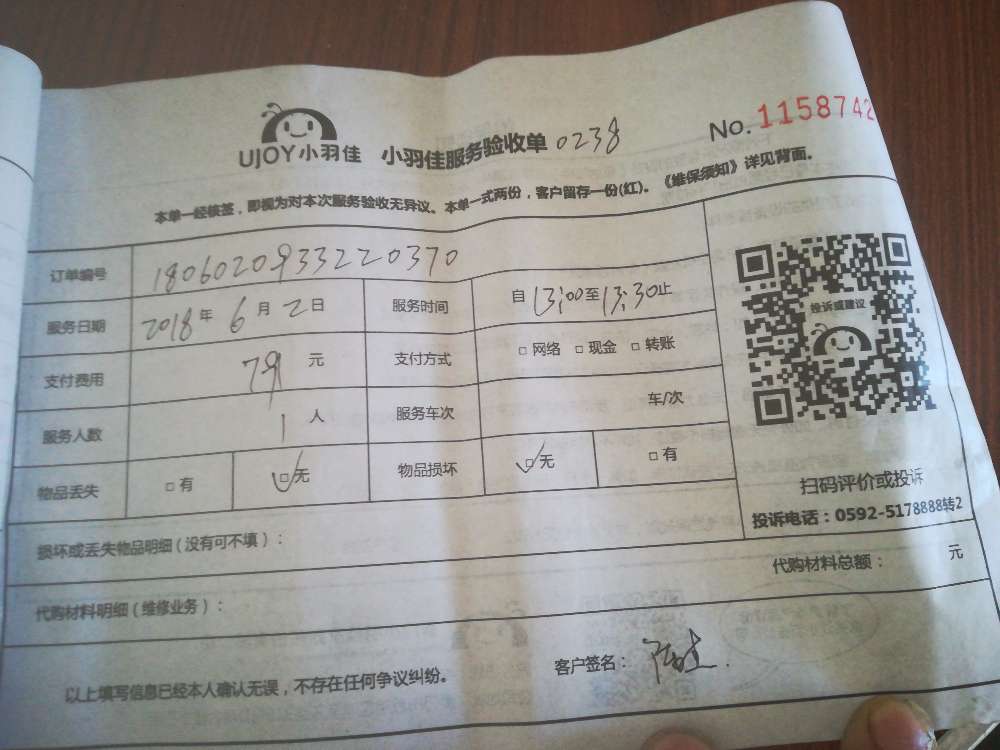 UJOY小羽佳 小羽佳服务验收单 0238
No. 1158742
本单一经核签，即视为对本次服务验收无异议。本单一式两份，客户留存一份(红)。《维保须知》详见背面。
订单编号 1806020933220370
服务日期 2018年 6月 2日 服务时间 自 13:00至13:30止
支付费用 79 元 支付方式 □网络 □现金 □转账
服务人数 1 人 服务车次 车/次
物品丢失 □有 □无 物品损坏 □无 □有
投诉或建议
扫码评价或投诉
投诉电话：0592-5178888转2
损坏或丢失物品明细(没有可不填)：
代购材料明细(维修业务)： 代购材料总额： 元
以上填写信息已经本人确认无误，不存在任何争议纠纷。 客户签名：